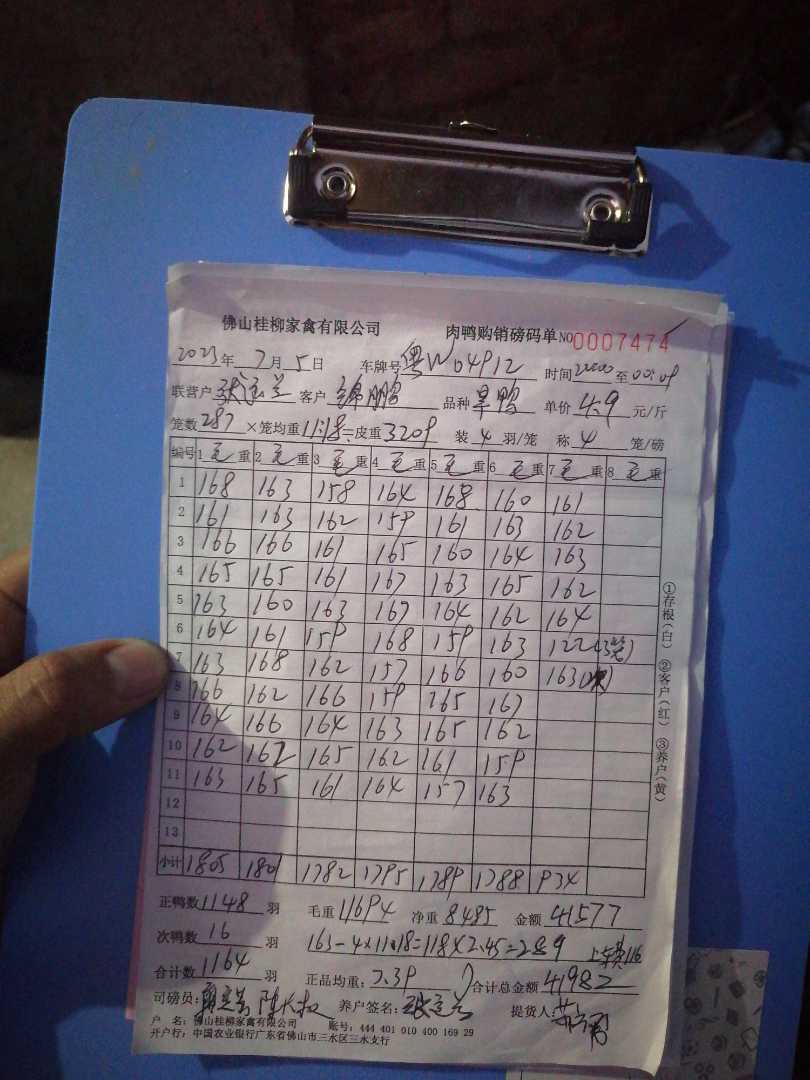 佛山桂柳家禽有限公司 肉鸭购销磅码单 NO 0007474
2023年 7月 5日 车牌号 粤W04912 时间 至 00:09
联营户 客户 锦鹏 品种 单价 4.9 元/斤
笼数 287 ×笼均重 11.18 =皮重 3209 装 4 羽/笼 称 4 笼/磅
编号 1 毛重 2 毛重 3 毛重 4 毛重 5 毛重 6 毛重 7 毛重 8 毛重
1 168 163 158 164 168 160 161
2 161 163 162 159 161 163 162
3 166 166 161 165 160 164 163
4 165 165 161 167 163 165 162
5 163 160 163 167 164 162 164
6 164 161 159 168 159 163 122(3笼)
7 163 168 162 157 166 160 163(次)
8 166 162 166 159 165 167
9 164 166 164 163 165 162
10 162 162 165 162 161 159
11 163 165 161 164 157 163
12
13
小计 1805 1801 1782 1795 1789 1788 934
正鸭数 1148 羽 毛重 11694 净重 8485 金额 41577
次鸭数 16 羽 163-4×11.18=118×2.45=289 上车费116
合计数 1164 羽 正品均重: 7.39 合计总金额 41982
司磅员: 养户签名: 提货人:
户 名: 佛山桂柳家禽有限公司 账号: 444 401 010 400 169 29
开户行: 中国农业银行广东省佛山市三水区三水支行
①存根(白) ②客户(红) ③养户(黄)